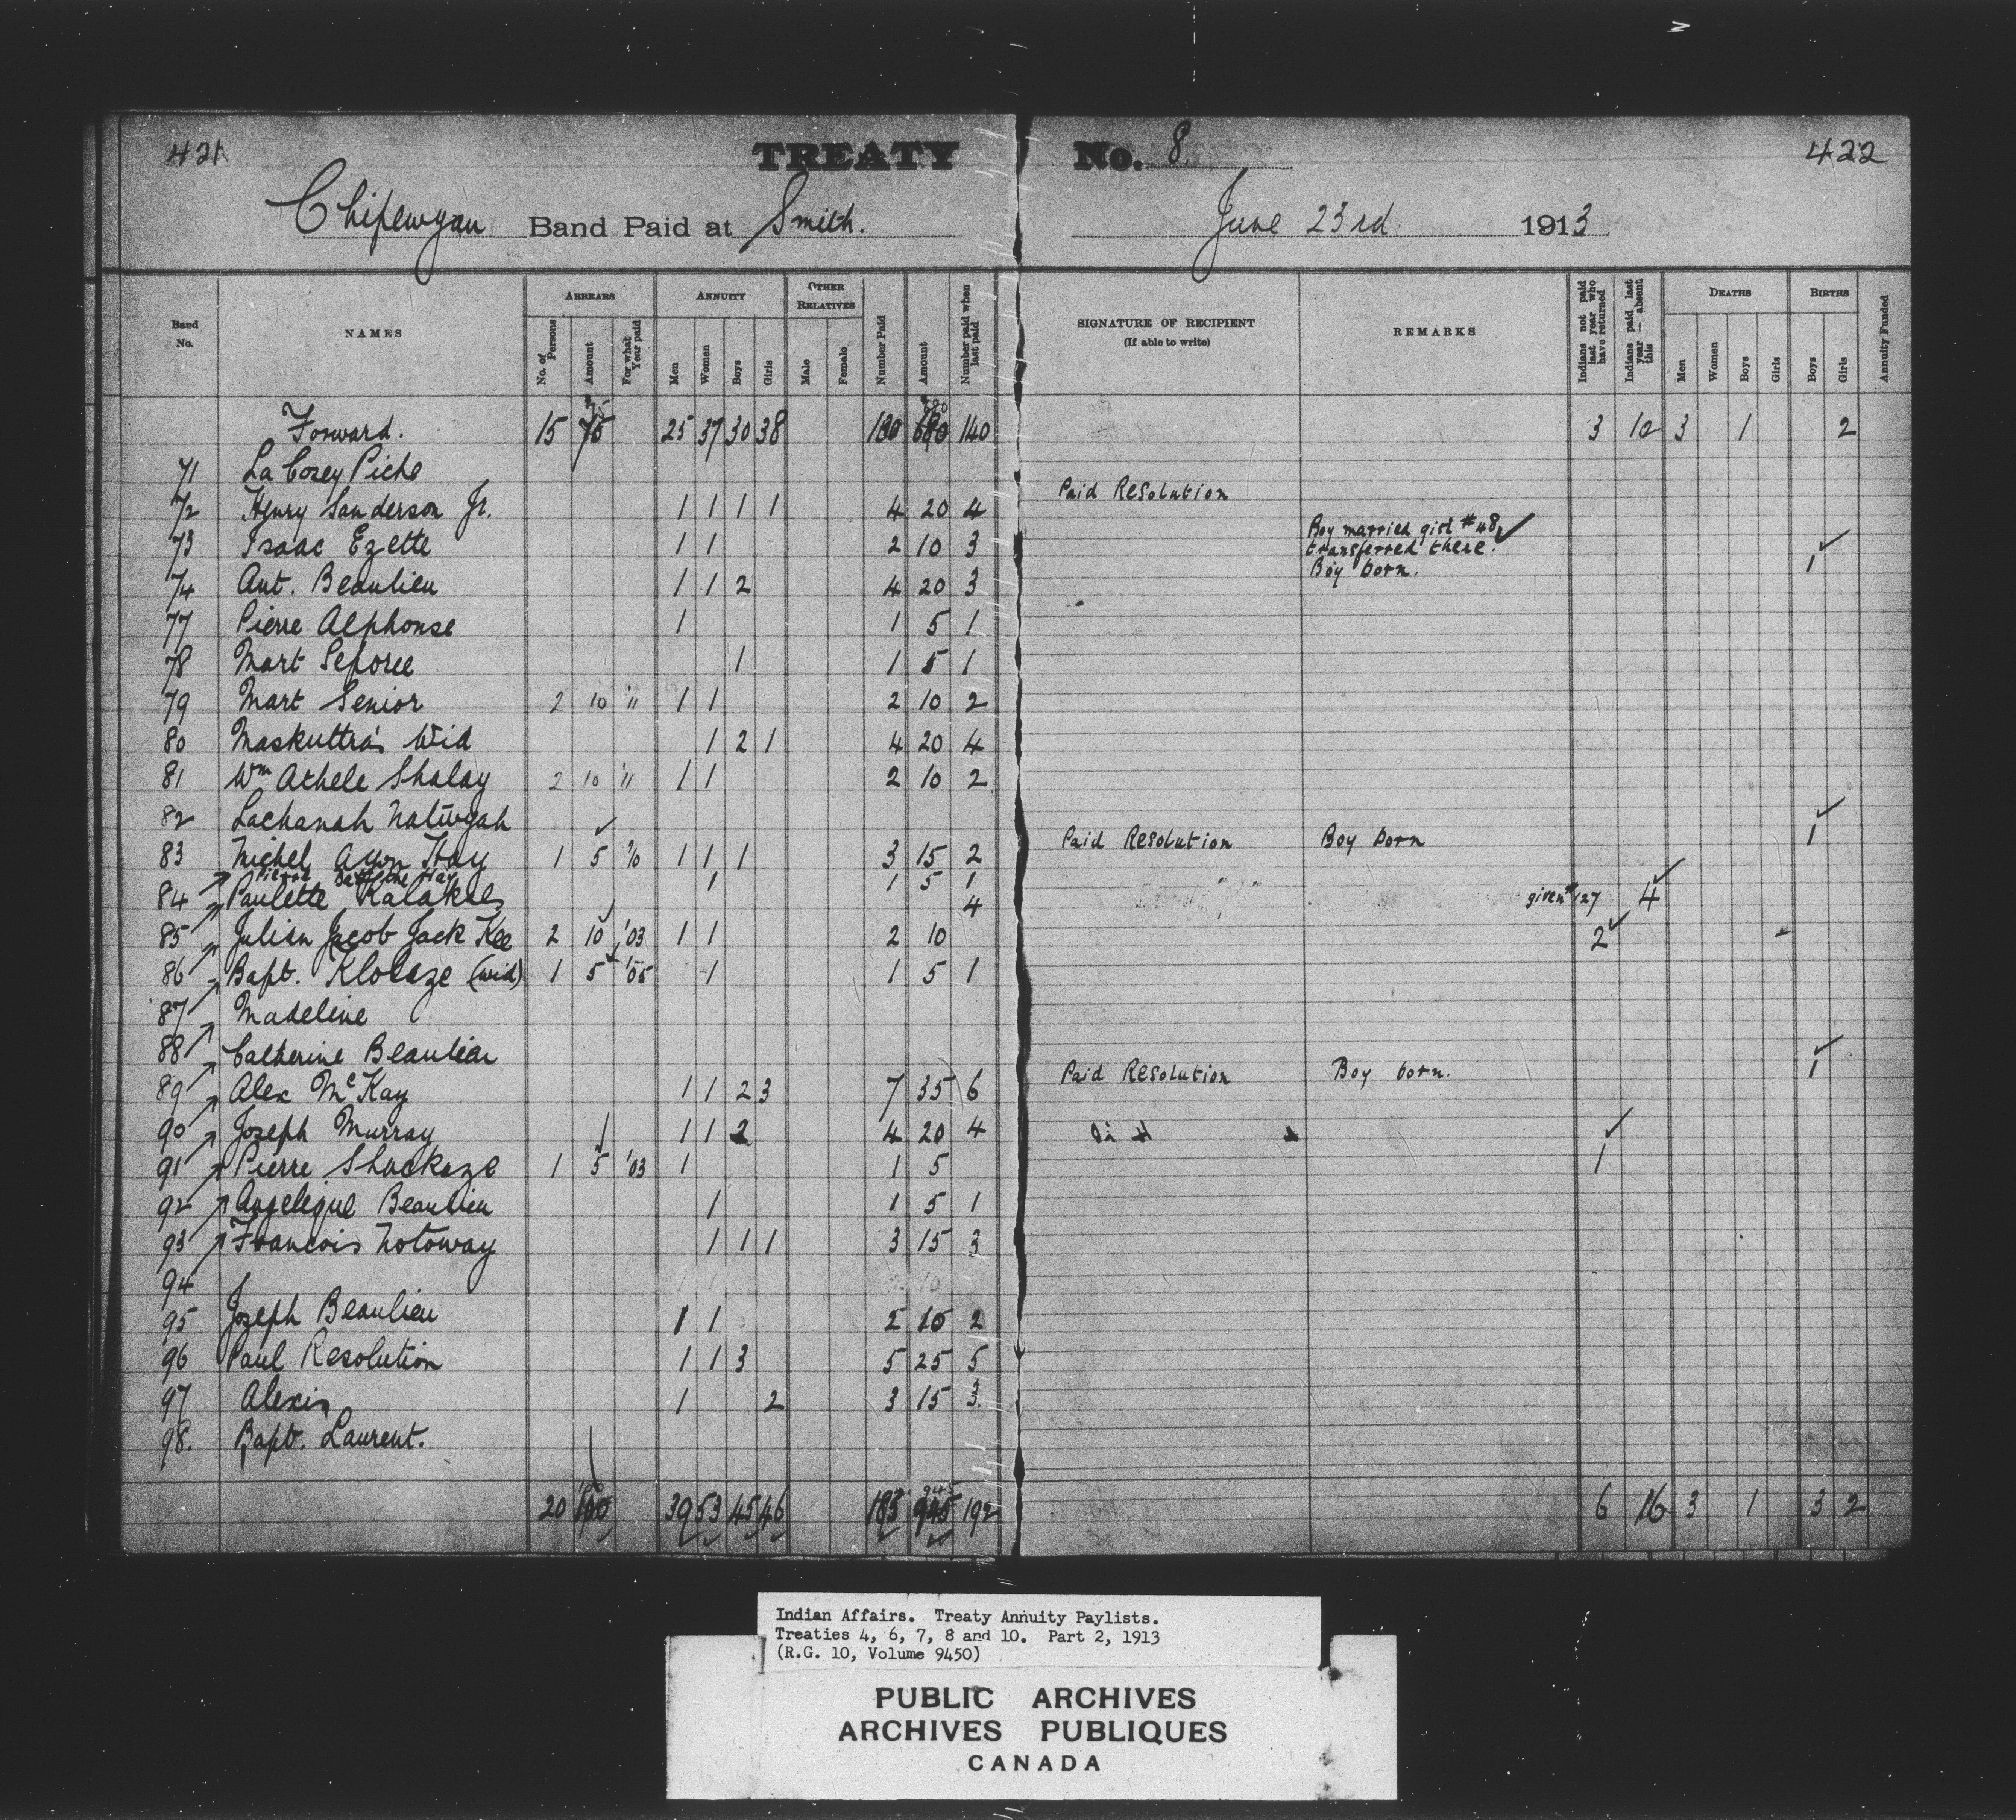 421 TREATY No. 8. 422
Chipewyan Band Paid at Smith. June 23rd 1913
Band No. NAMES ARREARS No. of Persons Amount For what Year paid ANNUITY Men Women Boys Girls OTHER RELATIVES Male Female Number Paid Amount Number paid when last paid SIGNATURE OF RECIPIENT (If able to write) REMARKS Indians not paid last year who have returned Indians paid last year — absent this DEATHS Men Women Boys Girls BIRTHS Boys Girls Annuity Funded
Forward. 15 75 25 37 30 38 130 680 140 3 10 3 1 2
71 La Corey Piche
72 Henry Sanderson Jr. 1 1 1 1 4 20 4 Paid Resolution
73 Isaac Ezette 1 1 2 10 3 Boy married girl #48 transferred there.
74 Ant. Beaulieu 1 1 2 4 20 3 Boy born. 1
77 Pierre Alphonse 1 1 5 1
78 Mart Seporee 1 1 5 1
79 Mart Senior 2 10 '11 1 1 2 10 2
80 Maskuttra's Wid 1 2 1 4 20 4
81 Wm Athele Shalay 2 10 '11 1 1 2 10 2
82 Lachanah Natwgah
83 Michel Ayon Hay 1 5 '10 1 1 1 3 15 2 Paid Resolution Boy born 1
Pierre Hay 1 1 5 1
84 Paulette Kalakles 4 given #127 4
85 Julian Jacob Jack Kee 2 10 '03 1 1 2 10 2
86 Bapt. Kloeaze (wid) 1 5 '05 1 1 5 1
87 Madeline
88 Catherine Beaulieu
89 Alex McKay 1 1 2 3 7 35 6 Paid Resolution Boy born. 1
90 Joseph Murray 1 1 2 4 20 4
91 Pierre Shackaze 1 5 '03 1 1 5 1
92 Angelique Beaulieu 1 1 5 1
93 Francois Notoway 1 1 1 3 15 3
94
95 Joseph Beaulieu 1 1 2 10 2
96 Paul Resolution 1 1 3 5 25 5
97 Alexis 1 2 3 15 3
98. Bapt. Laurent.
20 100 39 53 45 46 183 945 192 6 16 3 1 3 2
Indian Affairs. Treaty Annuity Paylists.
Treaties 4, 6, 7, 8 and 10. Part 2, 1913
(R.G. 10, Volume 9450)
PUBLIC ARCHIVES
ARCHIVES PUBLIQUES
CANADA